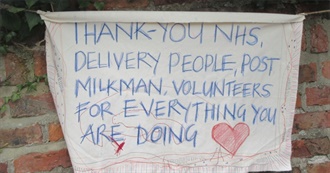 THANK-YOU NHS,
DELIVERY PEOPLE, POST
MILKMAN, VOLUNTEERS
FOR EVERYTHING YOU
ARE DOING